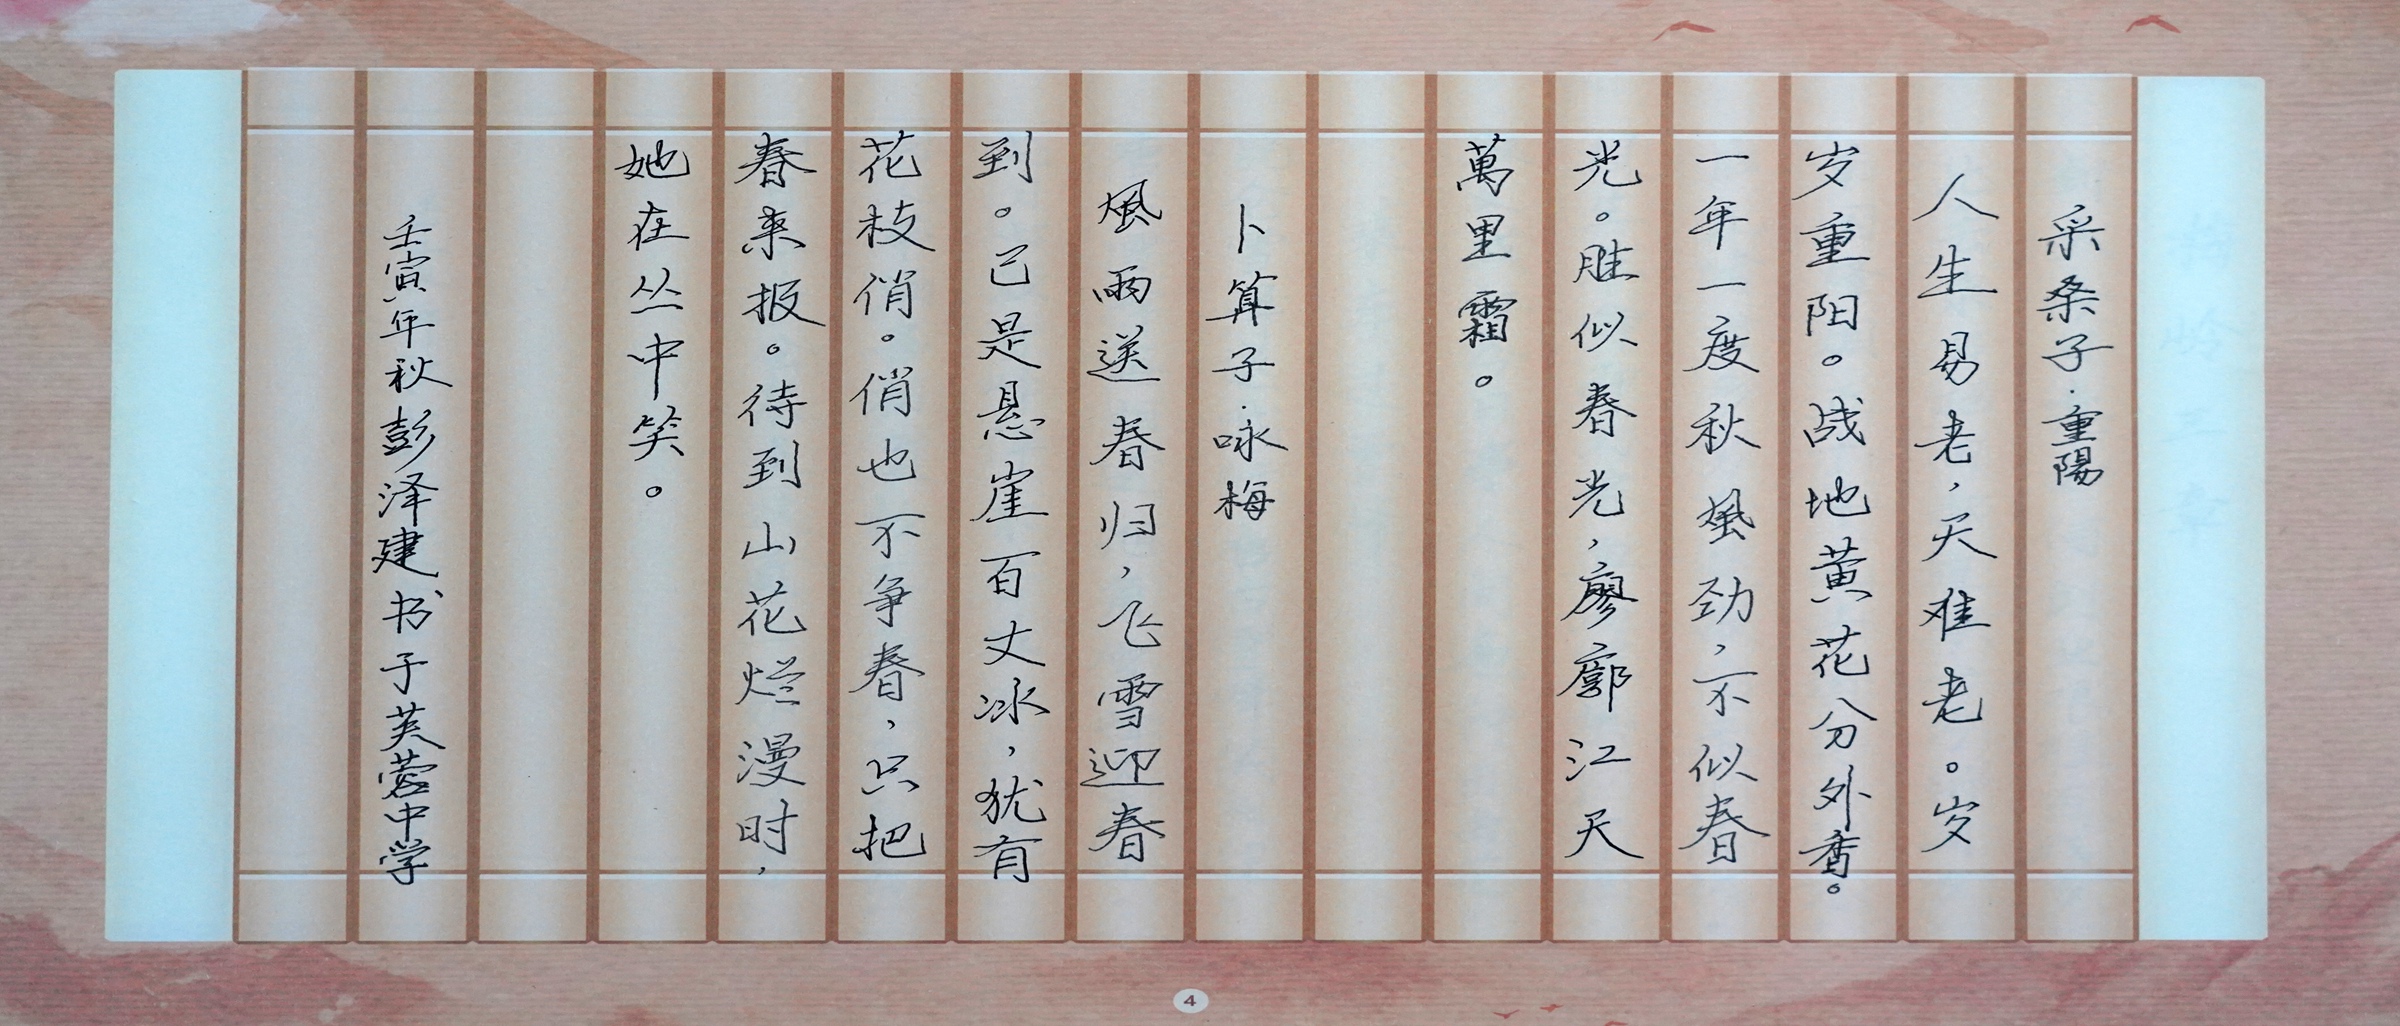 采桑子·重陽
人生易老，天难老。岁
岁重阳。战地黄花分外香。
一年一度秋風劲，不似春
光。胜似春光，廖廓江天
萬里霜。
卜算子·咏梅
風雨送春归，飞雪迎春
到。已是悬崖百丈冰，犹有
花枝俏。俏也不争春，只把
春来报。待到山花烂漫时，
她在丛中笑。
壬寅年秋彭泽建书于芙蓉中学
4